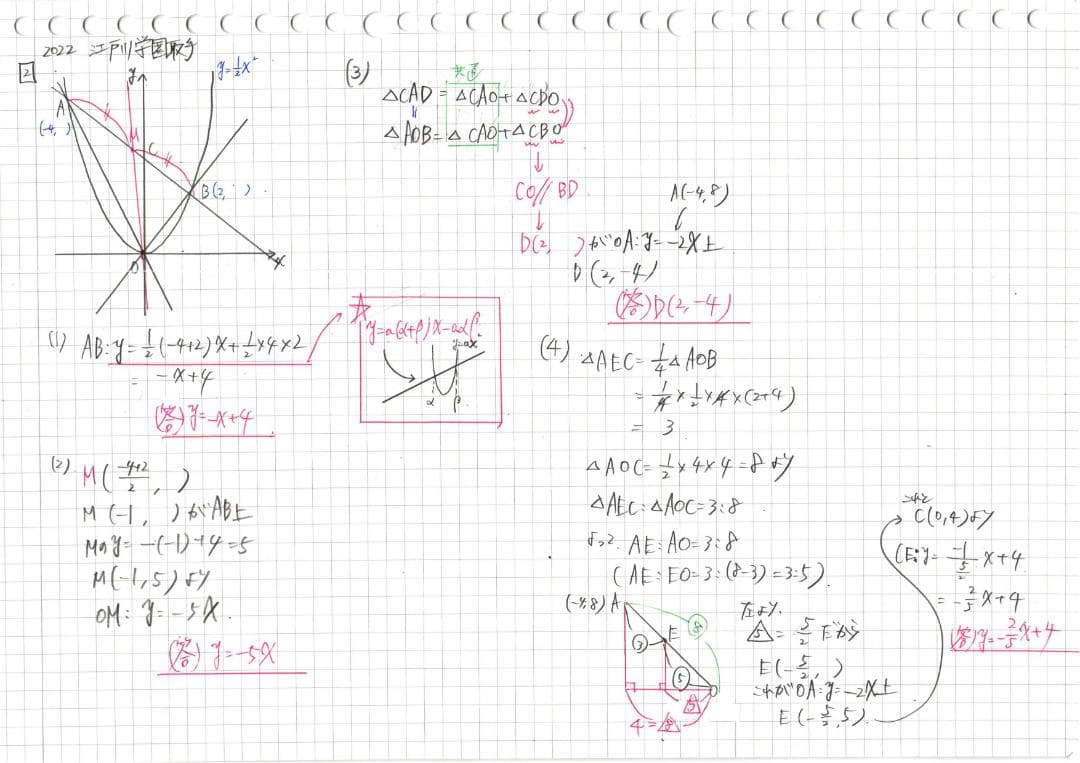 2022 江戸川学園取手
2
y
y=1/2x²
A
(-4, )
M
C
B(2, )
O
x
(1) AB:y=1/2(-4+2)x+1/2×4×2
= -x+4
(答)y=-x+4
☆
y=a(α+β)x-aαβ
y=ax²
α β
(2) M(-4+2/2, )
M(-1, )がAB上
Mのy=-(-1)+4=5
M(-1,5)より
OM:y=-5x.
(答)y=-5x
(3)
共通
△CAD=△CAO+△CDO
△AOB=△CAO+△CBO
↓
CO//BD
↓
A(-4,8)
D(2, )がOA:y=-2x上
D(2,-4)
(答)D(2,-4)
(4) △AEC=1/4△AOB
=1/4×1/2×4×(2+4)
= 3
△AOC=1/2×4×4=8より
△AEC:△AOC=3:8
よって AE:AO=3:8
(AE:EO=3:(8-3)=3:5).
(-4,8) A
⑧
③
E
⑤
O
△5
4=△8
左より.
△5=5/2だから
E(-5/2, )
これがOA:y=-2x上
E(-5/2,5).
これと
C(0,4)より
CE:y=-1/(5/2)x+4
=-2/5x+4
(答)y=-2/5x+4